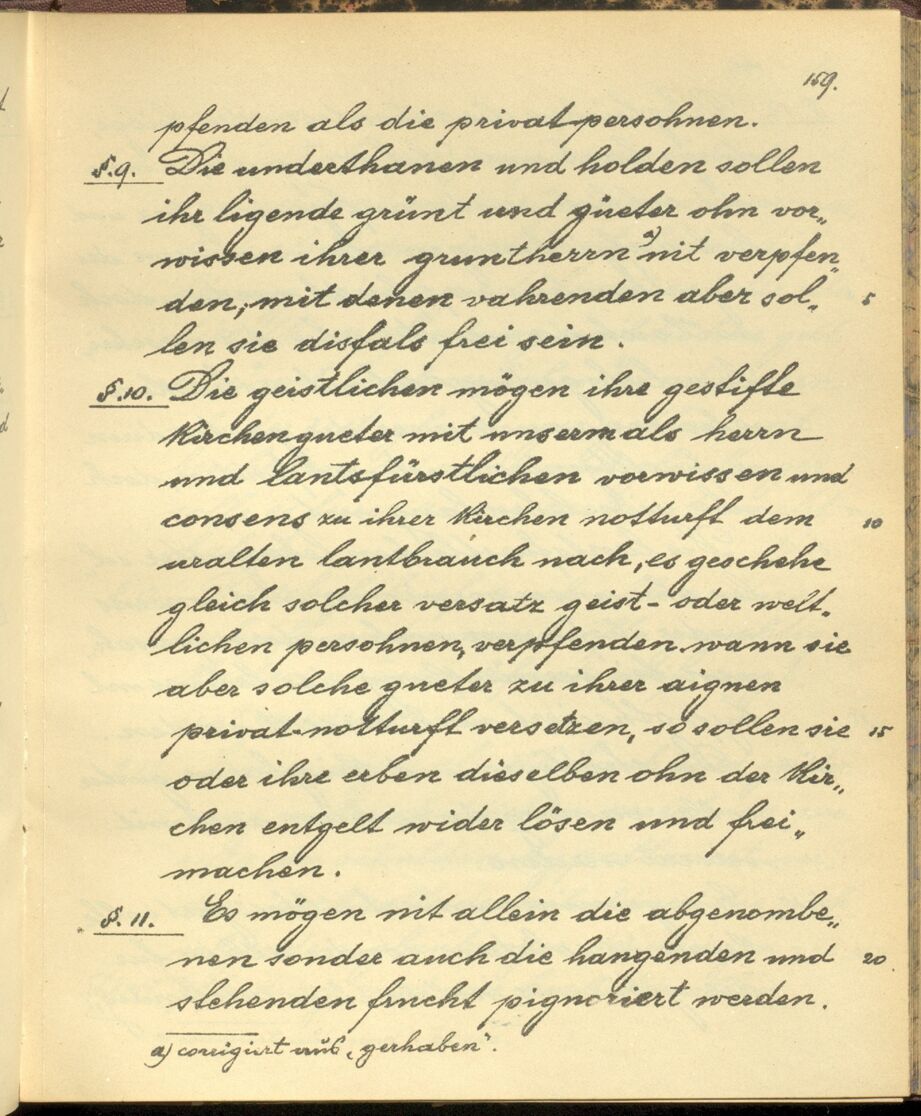 159.
pfenden als die privat-persohnen.
§.9. Die underthanen und holden sollen
ihr ligende grünt und güeter ohn vor„
wissen ihrer gruntherrn a) nit verpfen„
den, mit denen vahrenden aber sol„ 5
len sie disfals frei sein.
§.10. Die geistlichen mögen ihre gestifte
kirchengueter mit unserm als herrn
und lantsfürstlichen vorwissen und
consens zu ihrer kirchen notturft dem 10
uralten lantbrauch nach, es geschehe
gleich solcher versatz geist- oder welt„
lichen persohnen, verpfenden. wann sie
aber solche gueter zu ihrer aignen
privat-notturft versetzen, so sollen sie 15
oder ihre erben dieselben ohn der kir„
chen entgelt wider lösen und frei„
machen.
§. 11. Es mögen nit allein die abgenombe„
nen sonder auch die hangenden und 20
stehenden frucht pignoriert werden.
a) corrigiert aus „gerhaben“.